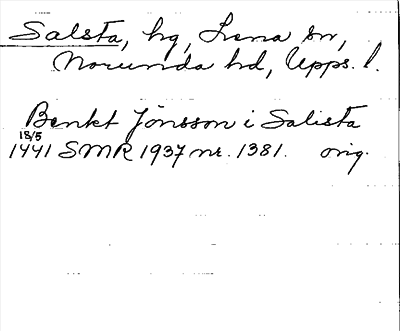 Salsta, hg, Lena sn,
Norunda hd, Upps. l.
Benkt Jönsson i Salista
18/5
1441 SMR 1937 nr. 1381. orig.